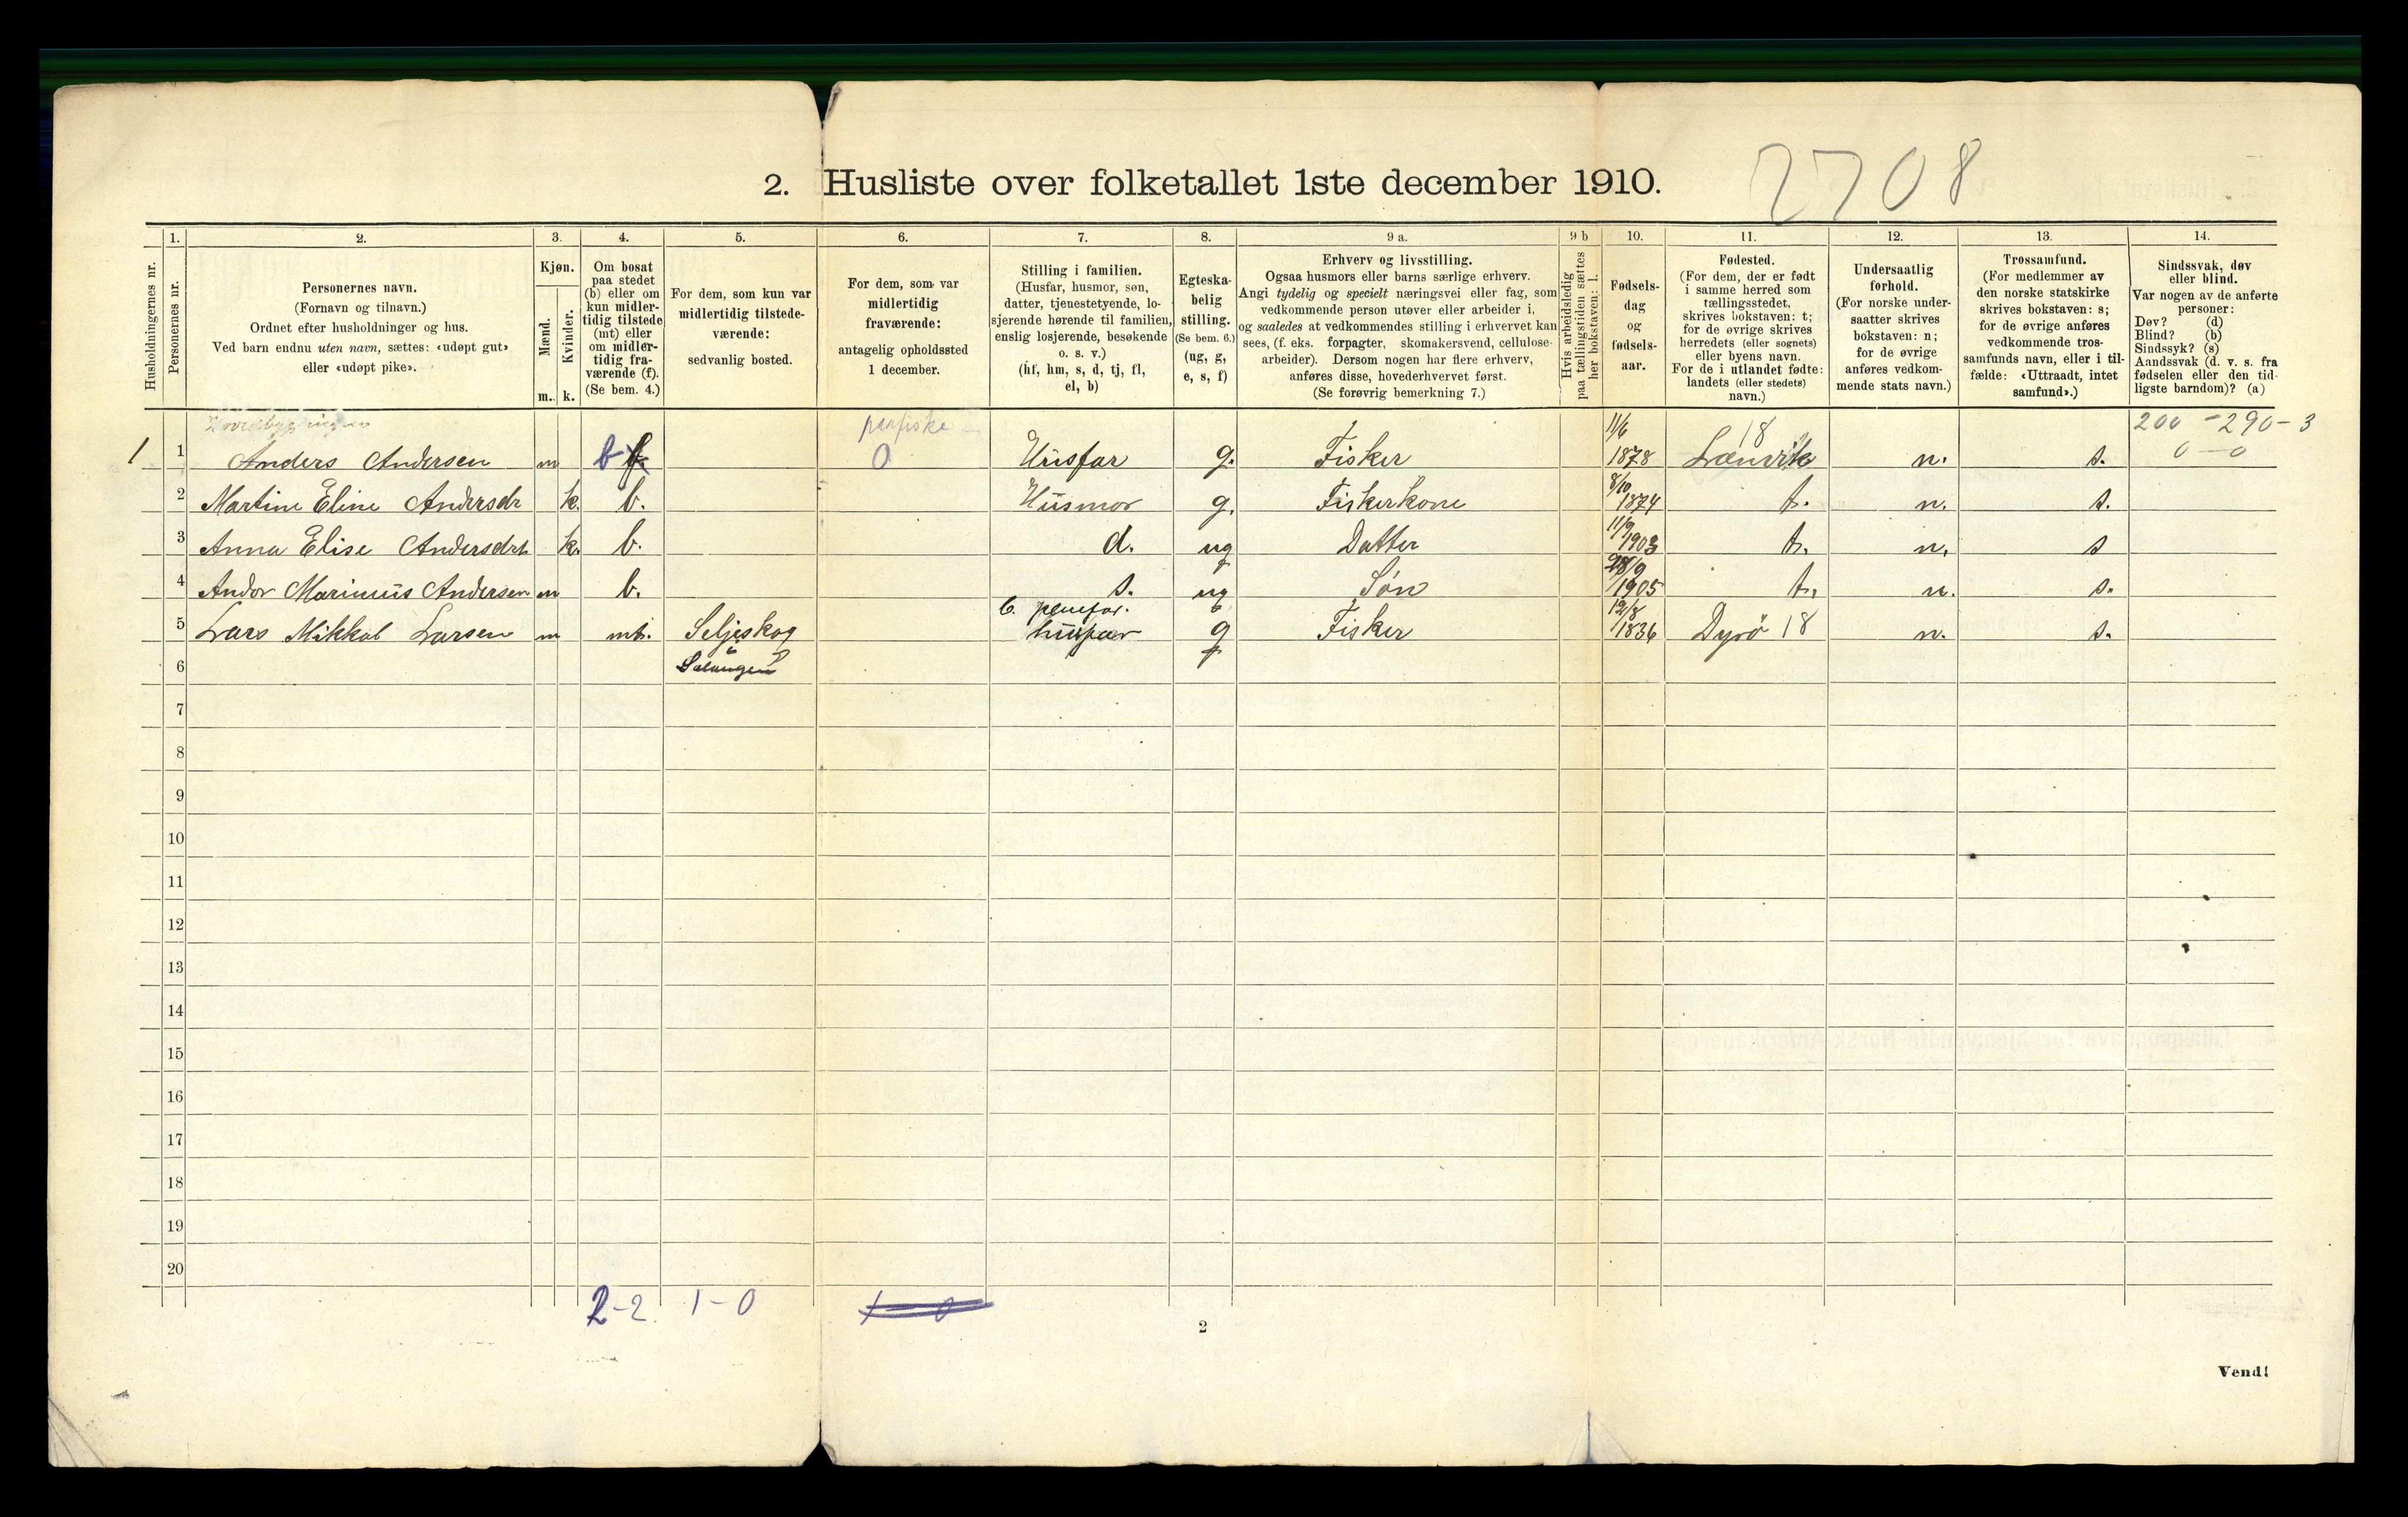 2. Husliste over folketallet 1ste december 1910.
2708
Husholdningernes nr.
1.
Personernes nr.
2.
Personernes navn.
(Fornavn og tilnavn.)
Ordnet efter husholdninger og hus.
Ved barn endnu uten navn, sættes: «udøpt gut»
eller «udøpt pike».
3.
Kjøn.
Mænd.
Kvinder.
m. k.
4.
Om bosat
paa stedet
(b) eller om
kun midler-
tidig tilstede
(mt) eller
om midler-
tidig fra-
værende (f).
(Se bem. 4.)
5.
For dem, som kun var
midlertidig tilstede-
værende:
sedvanlig bosted.
6.
For dem, som var
midlertidig
fraværende:
antagelig opholdssted
1 december.
7.
Stilling i familien.
(Husfar, husmor, søn,
datter, tjenestetyende, lo-
sjerende hørende til familien,
enslig losjerende, besøkende
o. s. v.)
(hf, hm, s, d, tj, fl,
el, b)
8.
Egteska-
belig
stilling.
(Se bem. 6.)
(ug, g,
e, s, f)
9 a.
Erhverv og livsstilling.
Ogsaa husmors eller barns særlige erhverv.
Angi tydelig og specielt næringsvei eller fag, som
vedkommende person utøver eller arbeider i,
og saaledes at vedkommendes stilling i erhvervet kan
sees, (f. eks. forpagter, skomakersvend, cellulose-
arbeider). Dersom nogen har flere erhverv,
anføres disse, hovederhvervet først.
(Se forøvrig bemerkning 7.)
9 b
Hvis arbeidsledig
paa tællingstiden sættes
her bokstaven: l.
10.
Fødsels-
dag
og
fødsels-
aar.
11.
Fødested.
(For dem, der er født
i samme herred som
tællingsstedet,
skrives bokstaven: t;
for de øvrige skrives
herredets (eller sognets)
eller byens navn.
For de i utlandet fødte:
landets (eller stedets)
navn.)
12.
Undersaatlig
forhold.
(For norske under-
saatter skrives
bokstaven: n;
for de øvrige
anføres vedkom-
mende stats navn.)
13.
Trossamfund.
(For medlemmer av
den norske statskirke
skrives bokstaven: s;
for de øvrige anføres
vedkommende tros-
samfunds navn, eller i til-
fælde: «Uttraadt, intet
samfund».)
14.
Sindssvak, døv
eller blind.
Var nogen av de anførte
personer:
Døv? (d)
Blind? (b)
Sindssyk? (s)
Aandssvak (d. v. s. fra
fødselen eller den tid-
ligste barndom)? (a)
Hovedbygningen paafiske 11/6 18 200 - 290 - 3
1 1 Anders Andersen m b f 0 Husfar g. Fisker 1878 Lænvik n. s. 0 - 0
2 Martine Eline Andersdr k. b. Husmor g. Fiskerkone 8/10 1874 t. n. s.
3 Anna Elise Andersdrt. k. b. d. ug Datter 11/9 1903 t. n. s
4 Andor Marinius Andersen m b. s. ug Søn 28/9 1905 t. n. s.
5 Lars Mikkal Larsen m mt. Seljeskog b. husfar g Fisker 12/8 1836 Dyrö 18 n. s.
6 Salangen
7
8
9
10
11
12
13
14
15
16
17
18
19
20
2-2 1-0 1-0
2
Vend!